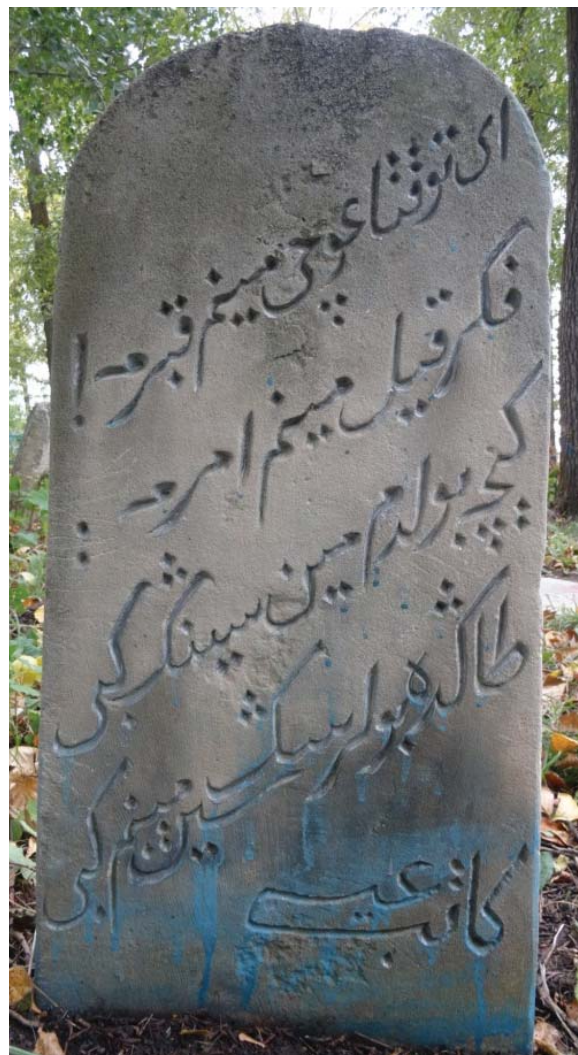 ای توقتاغوچی مینم قبرمه !
فکر قیل مینم امرمه :
کیچه بولدم مین سینڭ کبی
طاڭده بولورسڭ سین مینم کبی
کاتب